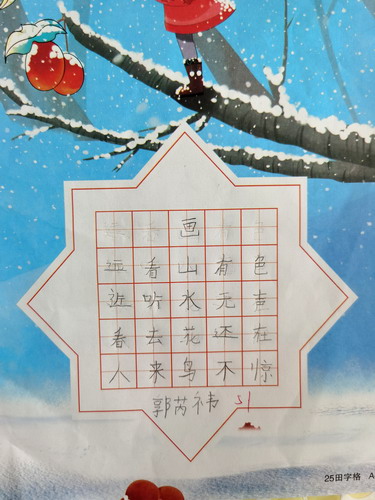 画
远看山有色
近听水无声
春去花还在
人来鸟不惊
郭芮祎
25田字格 A